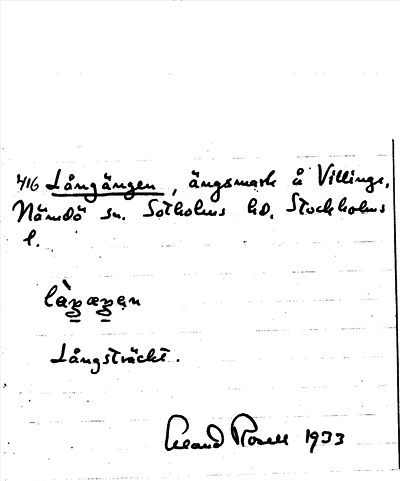 416 Långängen, ängsmark å Villinge,
Nämdö sn. Sotholms hd. Stockholms
l.
làŋæŋən
Långsträckt.
Erland Rosell 1933